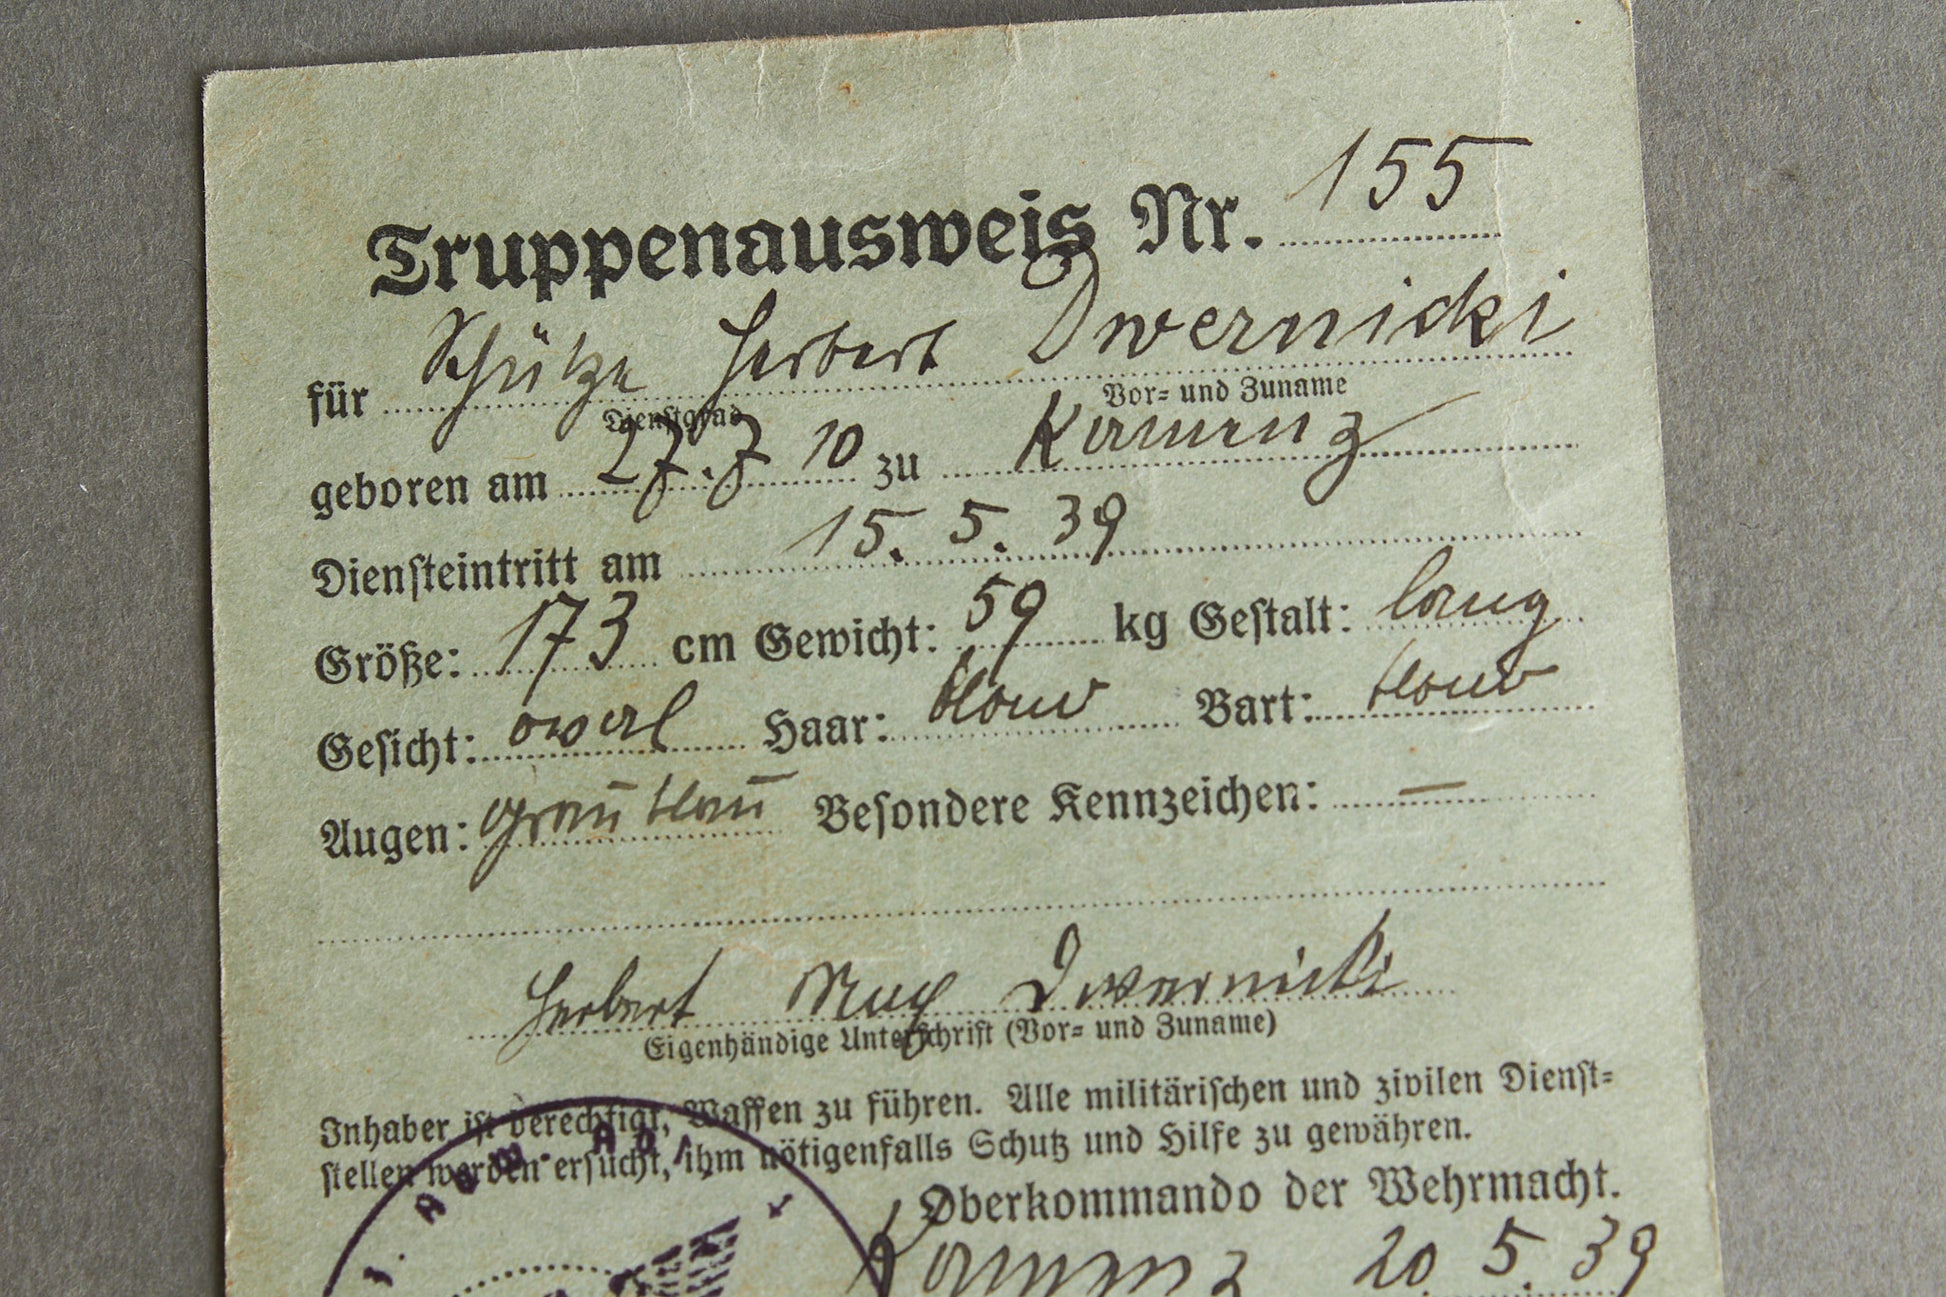 Truppenausweis Nr. 155
für Schütze Herbert Dwernicki
Dienstgrad Vor- und Zuname
geboren am 27.7 10 zu Kamenz
Diensteintritt am 15. 5. 39
Größe: 173 cm Gewicht: 59 kg Gestalt: lang
Gesicht: owal Haar: Bart:
Augen: graublau Besondere Kennzeichen: —
Herbert Max Dwernicki
Eigenhändige Unterschrift (Vor- und Zuname)
Inhaber ist berechtigt, Waffen zu führen. Alle militärischen und zivilen Dienst-
stellen werden ersucht, ihm nötigenfalls Schutz und Hilfe zu gewähren.
Oberkommando der Wehrmacht.
Kamenz 20. 5. 39